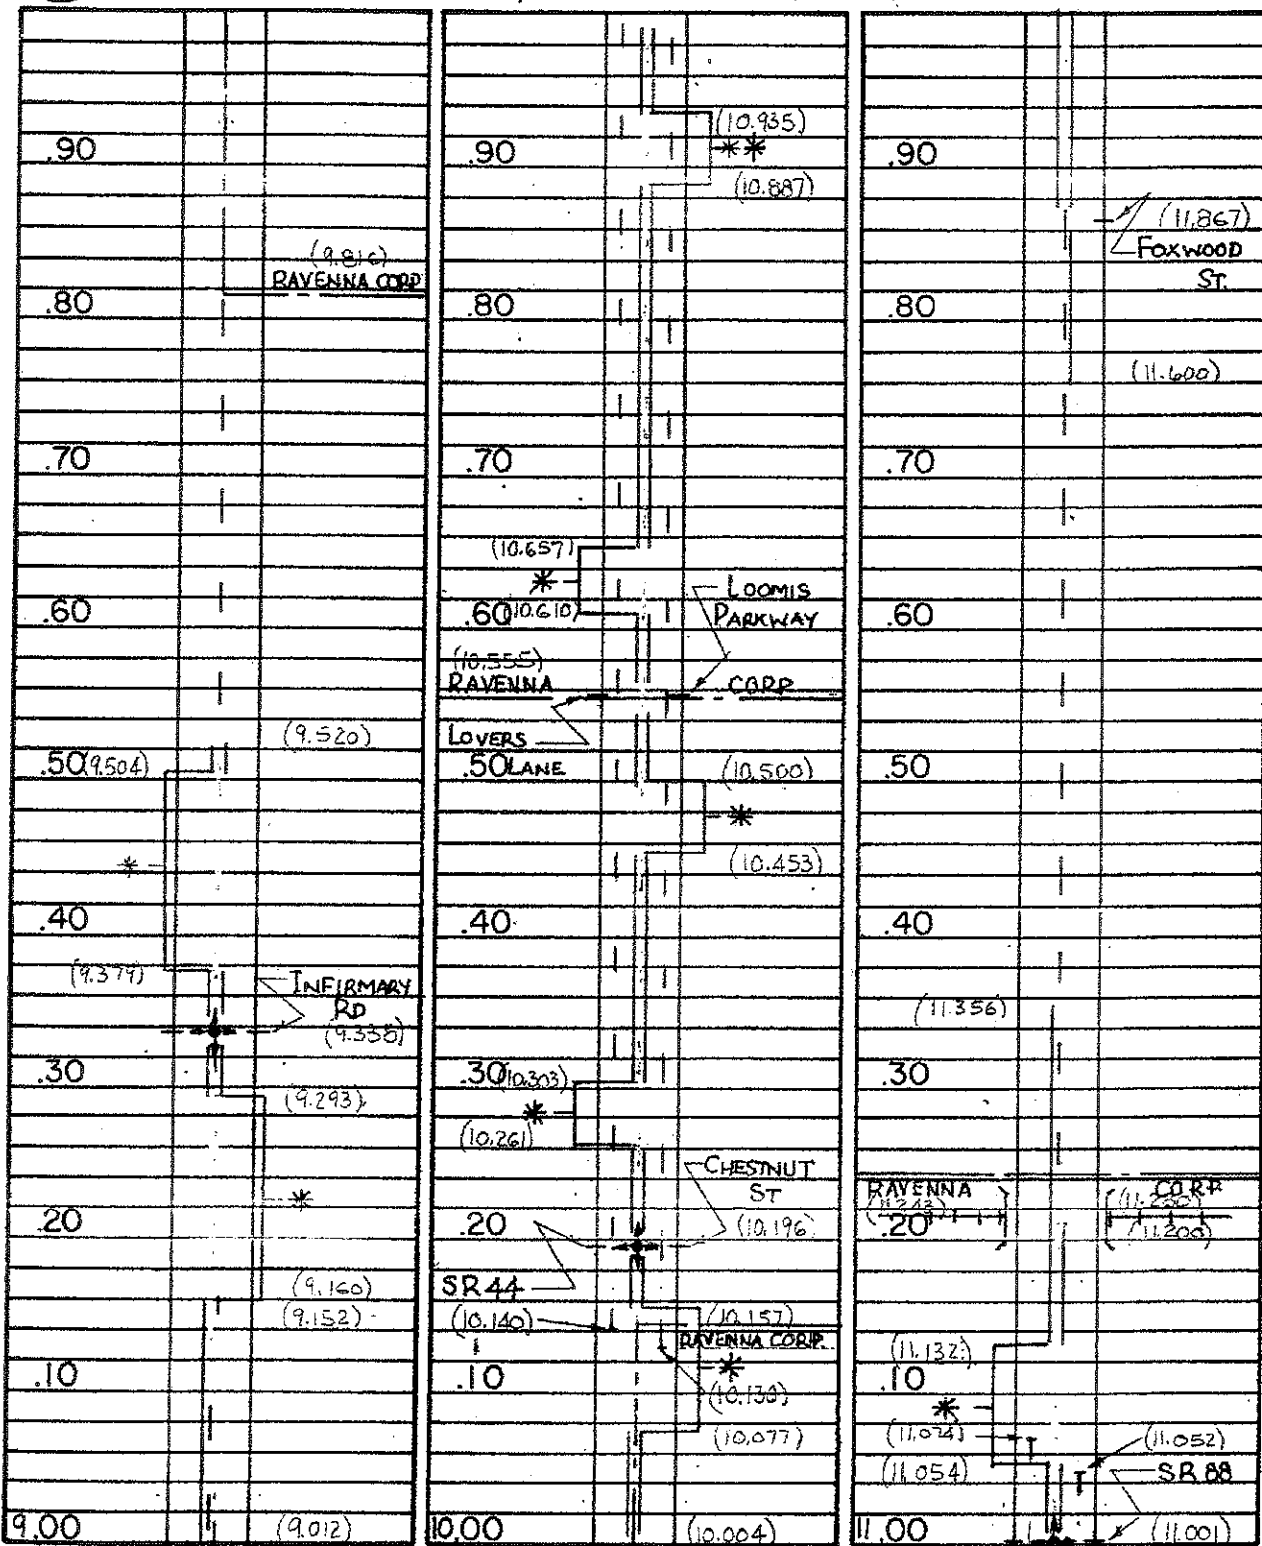 .90
(9.816)
RAVENNA CORP
.80
.70
.60
(9.520)
.50
(9.504)
*
.40
(9.379)
INFIRMARY
RD
(9.335)
.30
(9.293)
*
.20
(9.160)
(9.152)
.10
9.00
(9.012)
(10.935)
.90
**
(10.887)
.80
.70
(10.657)
*
LOOMIS
PARKWAY
.60
(10.610)
(10.555)
RAVENNA CORP.
LOVERS
LANE
.50
(10.500)
*
(10.453)
.40
.30
(10.303)
*
(10.261)
CHESTNUT
ST
.20
(10.196)
SR 44
(10.140)
(10.157)
RAVENNA CORP.
*
.10
(10.130)
(10.077)
10.00
(10.004)
.90
(11.867)
FOXWOOD
ST.
.80
(11.600)
.70
.60
.50
.40
(11.356)
.30
RAVENNA CORP.
.20
(11.200)
(11.132)
.10
*
(11.074)
(11.052)
(11.054)
SR 88
11.00
(11.001)